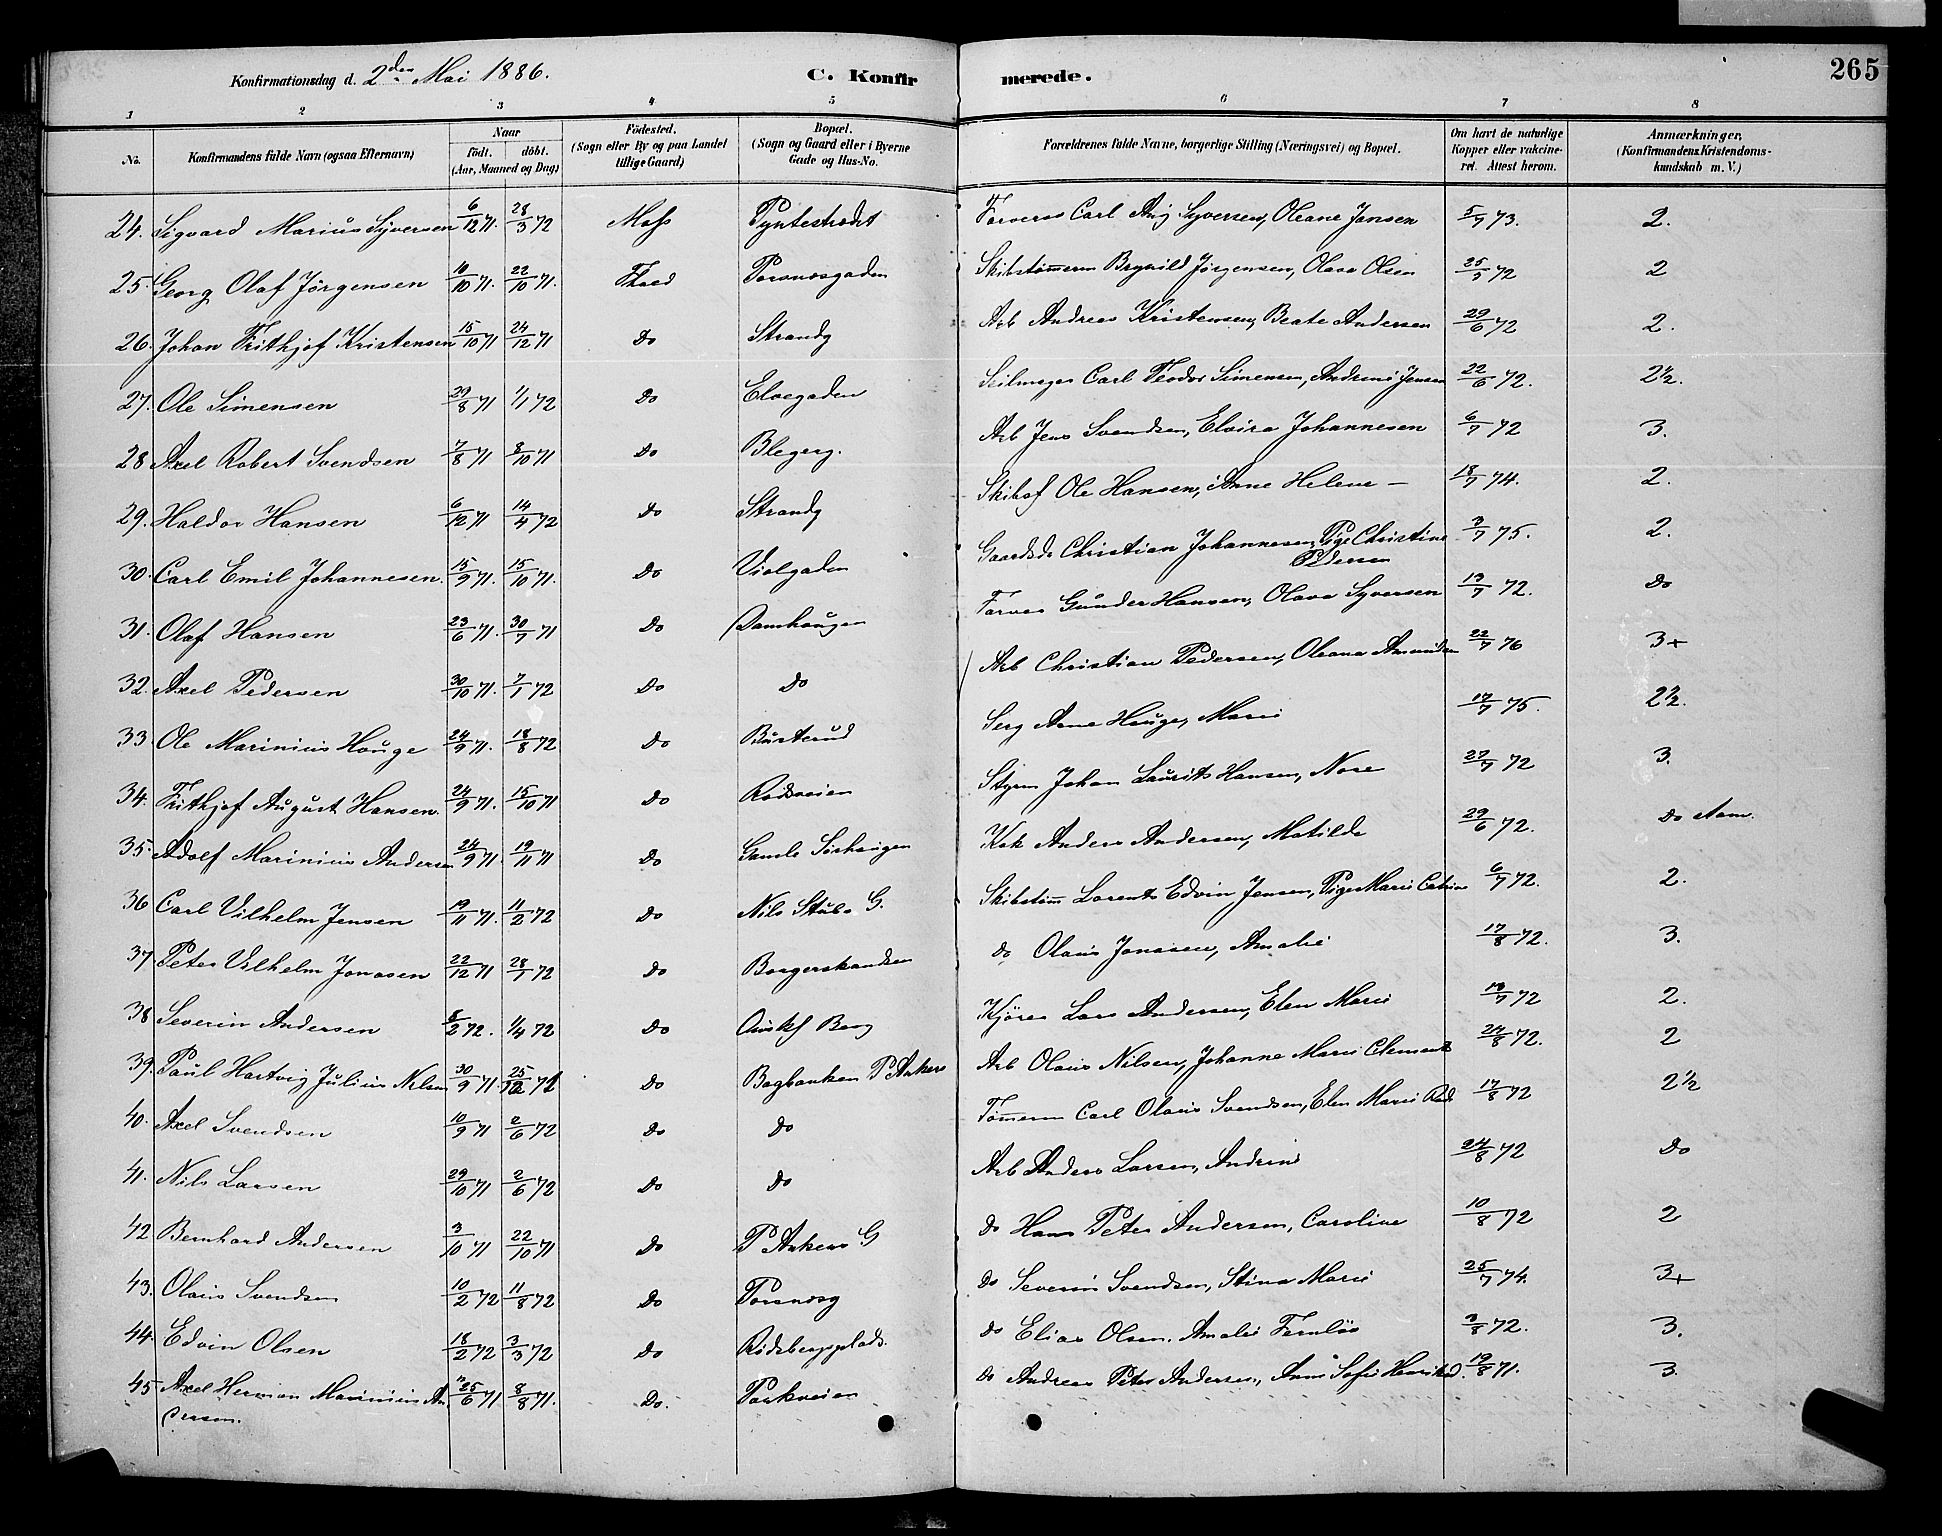 265
Konfirmationsdag d. 2den Mai 1886. C. Konfirmerede.
1 2 3 4 5 6 7 8
No. Konfirmandens fulde Navn (ogsaa Efternavn) Naar født. døbt. (Aar, Maaned og Dag) Fødested. (Sogn eller By og paa Landet tillige Gaard) Bopæl. (Sogn og Gaard eller i Byerne Gade og Hus-No. Forældrenes fulde Navne, borgerlige Stilling (Næringsvei) og Bopæl. Om havt de naturlige Kopper eller vaccineret. Attest herom. Anmærkninger, (Konfirmandens Kristendomskundskab m. V.)
24. Sigvard Marius Syversen 6/12 71. 28/3 72 Moss Farver Carl Aug Syversen, Oleane Jansen 5/7 73. 2.
25. Georg Olaf Jørgensen 10/10 71. 22/10 71. Fhald Torsnesgaden Skibstømerm Brynild Jørgensen, Olava Olsen 72 2
26. Johan Frithjof Kristensen 15/10 71 24/12 71 Do Strandg Arb Andreas Kristensen, Beate Andersen 29/6 72 2.
27. Ole Simensen 29/8 71 1/1 72 Do Elvegaden Seilmager Carl Teodor Simensen, Andrine Jensen 22/6 72. 2½.
28 Axel Robert Svendsen 7/8 71 8/10 71 Do Blegerg. Arb Jens Svendsen, Elvira Johannesen 6/7 72 3.
29. Haldor Hansen 6/12 71 14/4 72 Do Strandg Skibsf Ole Hansen, Anne Helene — 18/7 74. 2.
30. Carl Emil Johannesen. 15/9 71. 15/10 71. Do Violgaden Gaardsb Christian Johannesen, Pige Christine Pedersen 3/7 75. 2.
31. Olaf Hansen 23/6 71. 30/7 71 Do Damhaugen Farver Gunder Hansen, Olava Syversen 13/7 72. Do
32. Axel Pedersen 30/10 71. 7/1 72 Do Do Arb Christian Pedersen, Oleana Amundsen 22/7 76 3+
33. Ole Marinius Hauge 24/9 71. 18/8 72 Do Busterud Serg Arne Hauge, Marie 17/7 75. 2½.
34. Frithjof August Hansen. 24/9 71. 15/10 71 Do Rødsveien Styrm Johan Laurits Hansen, Nore 27/7 72 3.
35. Adolf Marinius Andersen 24/9 71. 19/11 71 Do Gamle Kok Anders Andersen, Matilde 29/6 72. Do
36 Carl Vilhelm Jensen 19/11 71. 11/2 72 Do Nils Stubs G. Skibstøm Lorents Edvin Jensen, Pige Marie 6/7 72. 2.
37 Peter Vilhelm Jonasen 22/12 71 28/1 72 Do Borgerskandsen do Olaus Jonasen, Amalie 17/8 72. 3.
38 Severin Andersen 8/2 72. 1/4 72 Do Berg Kjører Lars Andersen, Elen Marie 13/7 72 2.
39. Paul Hartvig Julius Nilsen 30/9 71 25/12 71 Do Bagbanken P Ankers Arb Olaus Nilsen, Johanne Marie 24/8 72. 2
40. Axel Svendsen 10/9 71 2/6 72 Do Do Tømerm Carl Olaus Svendsen, Elen Marie 17/8 72 2½
41. Nils Larsen 29/10 71 2/6 72 Do Do Arb Anders Larsen, Andrine 24/8 72 Do
42 Bernhard Andersen 3/10 71 22/10 71 Do P Ankers G do Hans Peter Andersen, Caroline 10/8 72 2
43. Olaus Svendsen 10/2 72 11/8 72 Do Torsnesg do Severin Svendsen, Stina Marie 25/7 74. 3+
44. Edvin Olsen 18/2 72 3/3 72 Do Rødsbergplads. do Elias Olsen, Amalie 3/8 72. 3.
45 Axel Herman Marinius Andersen. 25/6 71 8/8 71. Do. Parkveien do Andreas Peter Andersen, Anne Sofie 19/8 71. 3.